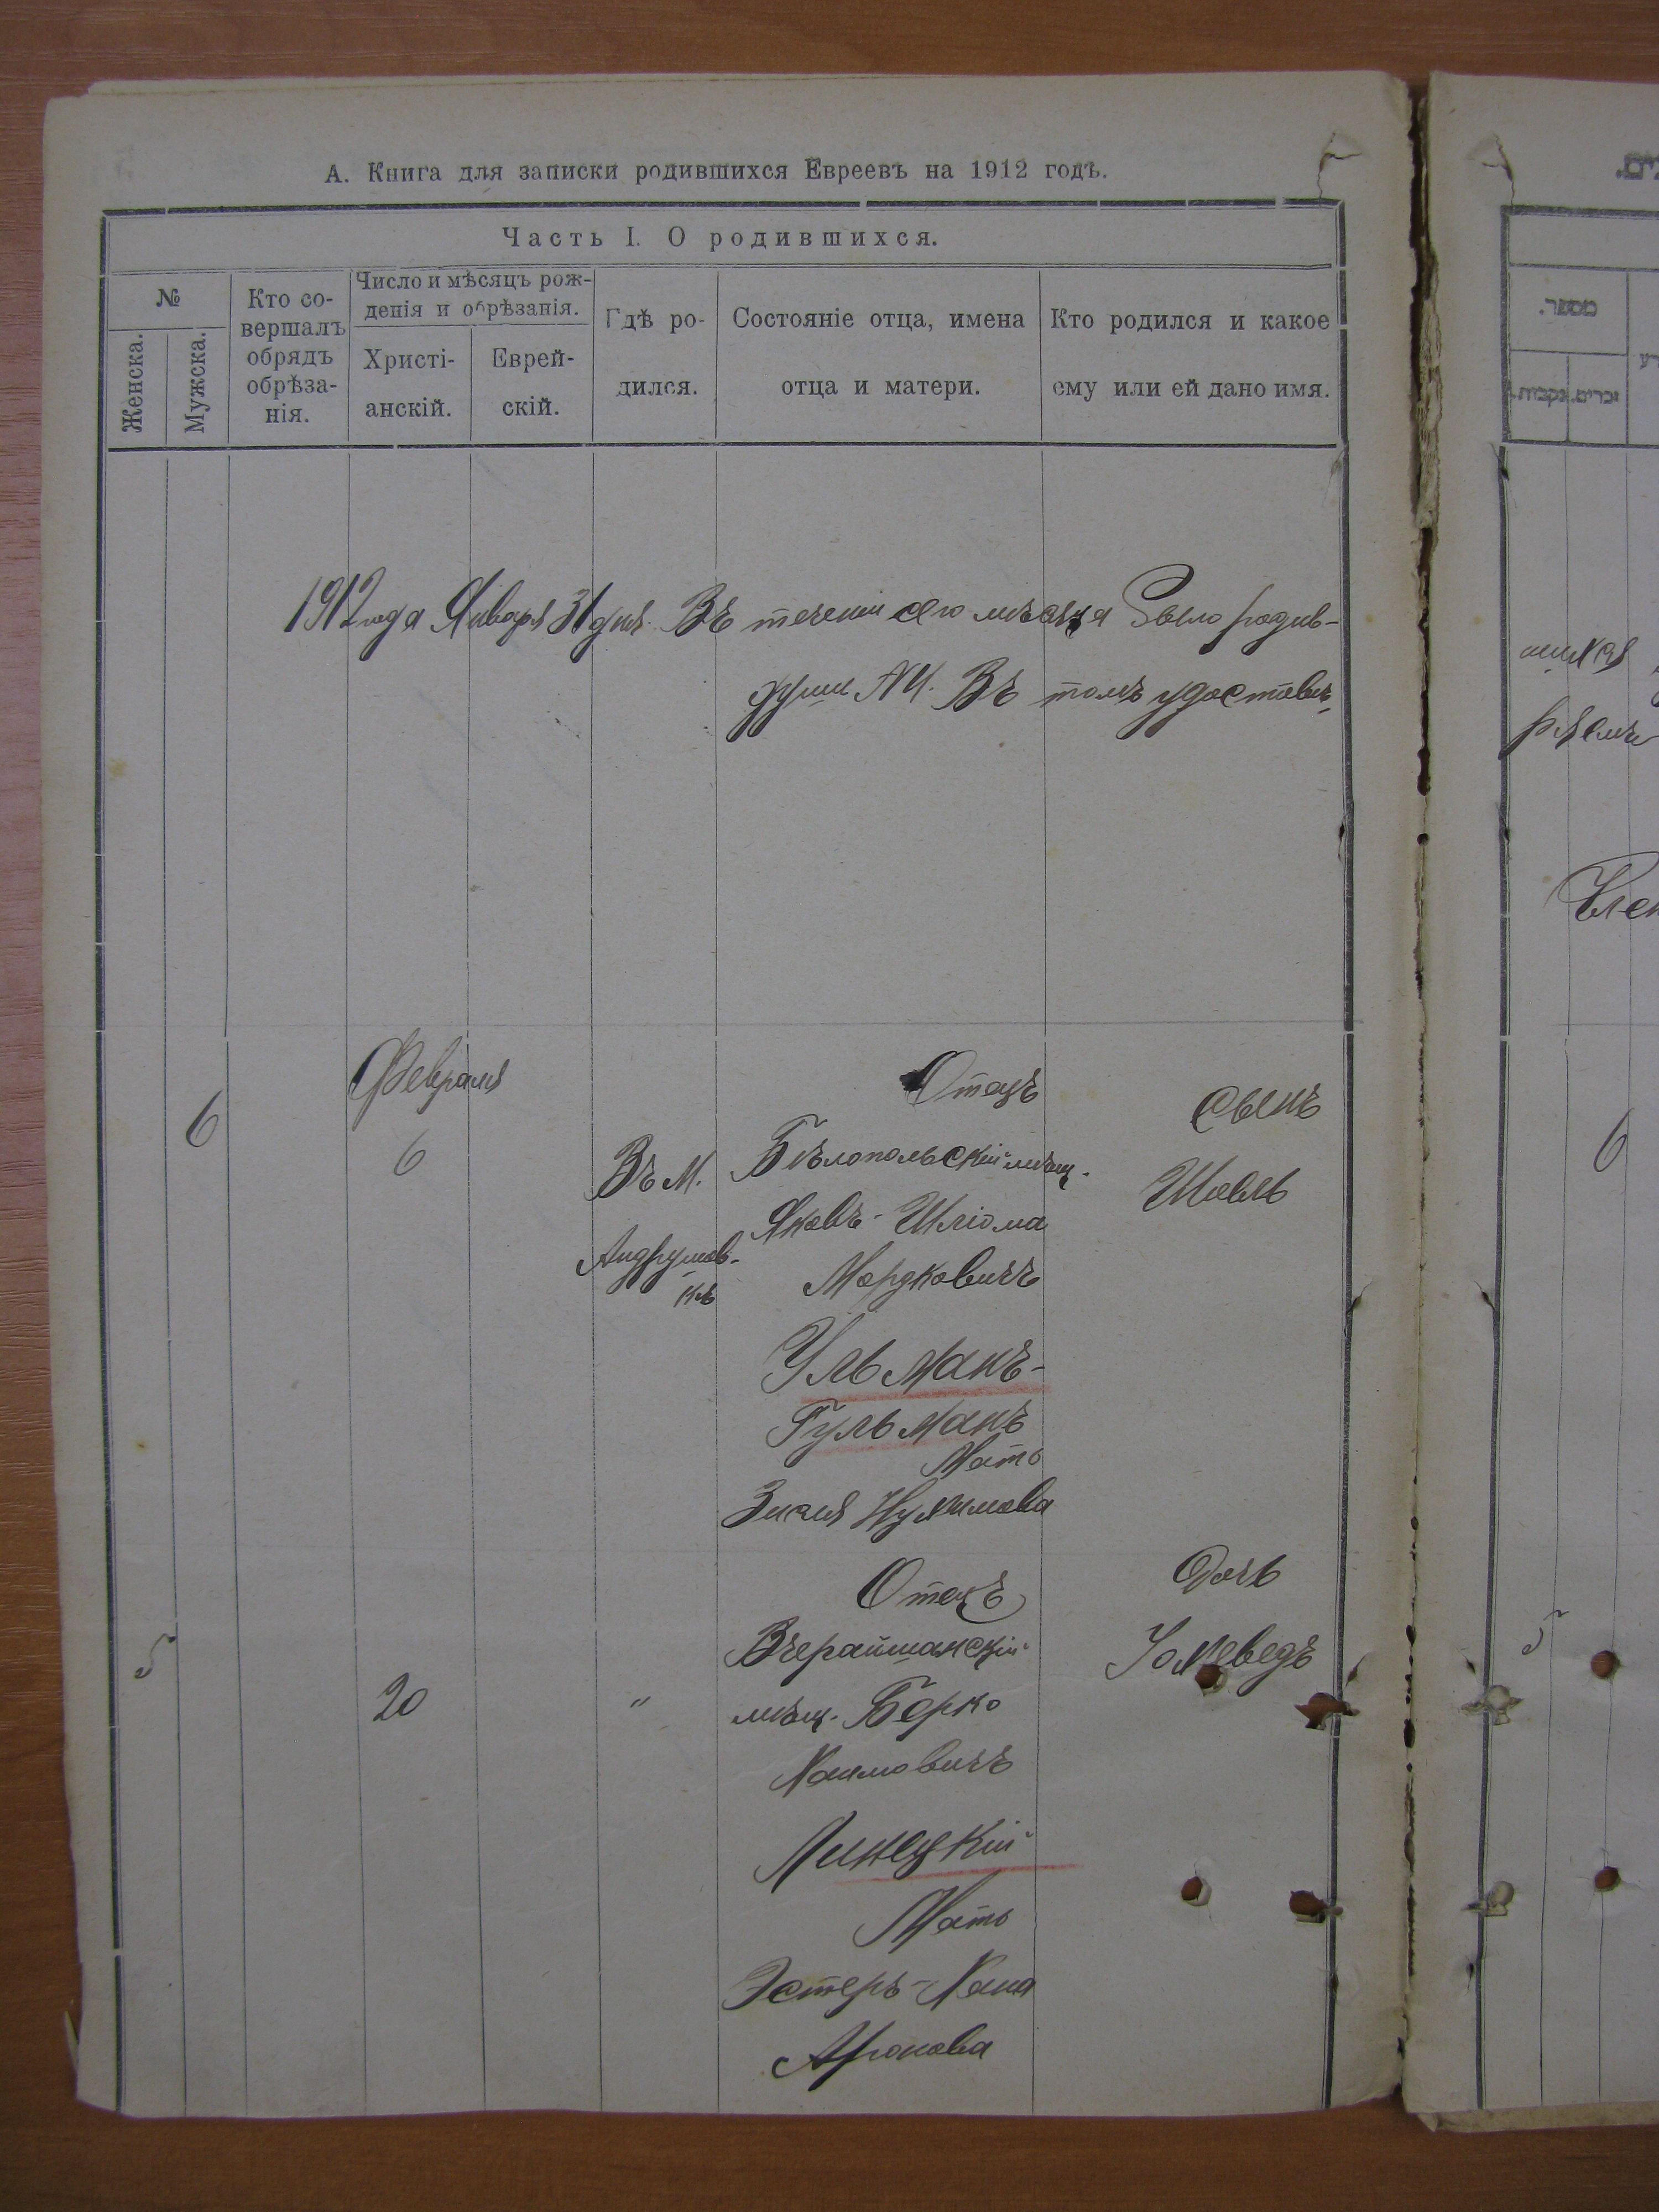 А. Книга для записки родившихся Евреевъ на 1912 годъ.
Часть I. О родившихся.
№
Женска.
Мужска.
Кто со-
вершалъ
обрядъ
обрѣза-
нія.
Число и мѣсяцъ рож-
денія и обрѣзанія.
Христі-
анскій.
Еврей-
скій.
Гдѣ ро-
дился.
Состояніе отца, имена
отца и матери.
Кто родился и какое
ему или ей дано имя.
1912 года Января 31 дня. Въ теченіи сего мѣсяца было родив-
шихся
души Въ томъ удостовѣ-
ряемъ
Член
6
Февраля
6
Въ м.
Андрушов-
кѣ
Отецъ
Бѣлопольскій мѣщ.
Яковъ-Шліома
Мордковичъ
Ульманъ-
Гульманъ
Мать
Нухимова
сынъ
Шовль
6
5
20
"
Отецъ
Вчерайшанскій
мѣщ. Берко
Хаимовичъ
Линецкій
Мать
Эстеръ-Хана
Аронова
Дочь
Іохеведъ
5